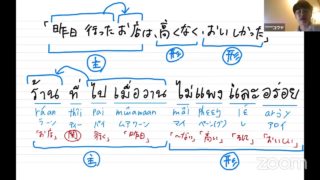 「昨日行ったお店は、高くなく、おいしかった」
主 形 形
ร้าน ที่ ไป เมื่อวาน ไม่แพงและอร่อย
ráan thîi pai mʉ̂awaan mâi phɛɛŋ lɛ́ arɔ̀y
ラーン ティー パイ ムアワーン マイ ペーン(グ) レ アロイ
「お店」 関 「行く」 「昨日」 「〜ない」 「高い」 「そして」 「おいしい」
主 形
zoom